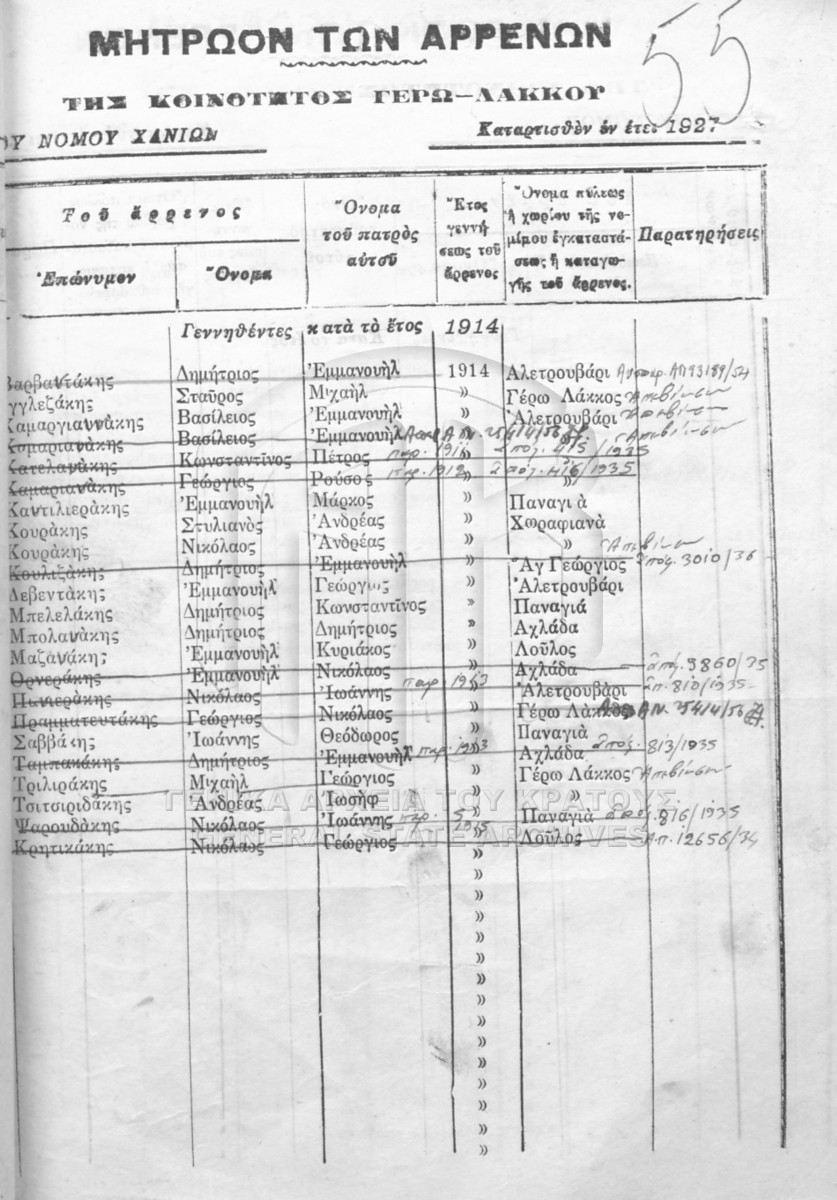 55
ΜΗΤΡΩΟΝ ΤΩΝ ΑΡΡΕΝΩΝ
ΤΗΣ ΚΟΙΝΟΤΗΤΟΣ ΓΕΡΩ—ΛΑΚΚΟΥ
ΟΥ ΝΟΜΟΥ ΧΑΝΙΩΝ Καταρτισθὲν ἐν ἔτει 1927
Τοῦ ἄρρενος
Ἐπώνυμον
Ὄνομα
Ὄνομα
τοῦ πατρὸς
αὐτοῦ
Ἔτος
γεννή
σεως τοῦ
ἄρρενος
Ὄνομα πόλεως
ἢ χωρίου τῆς νο-
μίμου ἐγκαταστά-
σεως ἢ καταγω-
γῆς τοῦ ἄρρενος.
Παρατηρήσεις
Γεννηθέντες κατὰ τὸ ἔτος 1914
Βαρβαντάκης Δημήτριος Ἐμμανουὴλ 1914 Αλετρουβάρι
γγλεζάκης Σταῦρος Μιχαὴλ » Γέρω Λάκκος
Καμαργιαννάκης Βασίλειος Ἐμμανουὴλ » Ἀλετρουβάρι
Κομαριανάκης Βασίλειος Ἐμμανουὴλ
Κατελανάκης Κωνσταντῖνος Πέτρος παρ. 1911 » ἀπόφ. 4/5/1935
Καμαριανάκης Γεώργιος Ροῦσος παρ. 1912 » » 1935
Καντιλιεράκης Ἐμμανουὴλ Μάρκος » Παναγιὰ
Κουράκης Στυλιανὸς Ἀνδρέας » Χωραφιανὰ
Κουράκης Νικόλαος Ἀνδρέας » »
Κουλιζάκης Δημήτριος Ἐμμανουὴλ » Ἅγ Γεώργιος 3010/36
Λεβεντάκης Ἐμμανουὴλ Γεώργιος » Ἀλετρουβάρι
Μπελελάκης Δημήτριος Κωνσταντῖνος » Παναγιά
Μπολανάκης Δημήτριος Δημήτριος » Αχλάδα
Μαζανάκης Ἐμμανουὴλ Κυριάκος » Λοῦλος
Ορνεράκης Ἐμμανουὴλ Νικόλαος » Αχλάδα ἀπόφ. 3860/35
Νικόλαος Ἰωάννης παρ. 1913 » Ἀλετρουβάρι 810/1935
Πραμματευτάκης Γεώργιος Νικόλαος » Γέρω Λάκκος
Σαββάκης Ἰωάννης Θεόδωρος » Παναγιὰ
Ταμπακάκης Δημήτριος Ἐμμανουὴλ παρ. 1913 » Αχλάδα ἀπόφ. 813/1935
Τριλιράκης Μιχαὴλ Γεώργιος » Γέρω Λάκκος
Τσιτσιριδάκης Ἀνδρέας Ἰωσὴφ » »
Ψαρουδάκης Νικόλαος Ἰωάννης παρ. 1915 » Παναγιὰ 8/6/1935
Κρητικάκης Νικόλαος Γεώργιος » Λοῦλος Α.π. 12656/34
»
»
»
»
»
»
»
»
»
»
»
»
»
»
ΓΕΝΙΚΑ ΑΡΧΕΙΑ ΤΟΥ ΚΡΑΤΟΥΣ
GENERAL STATE ARCHIVES